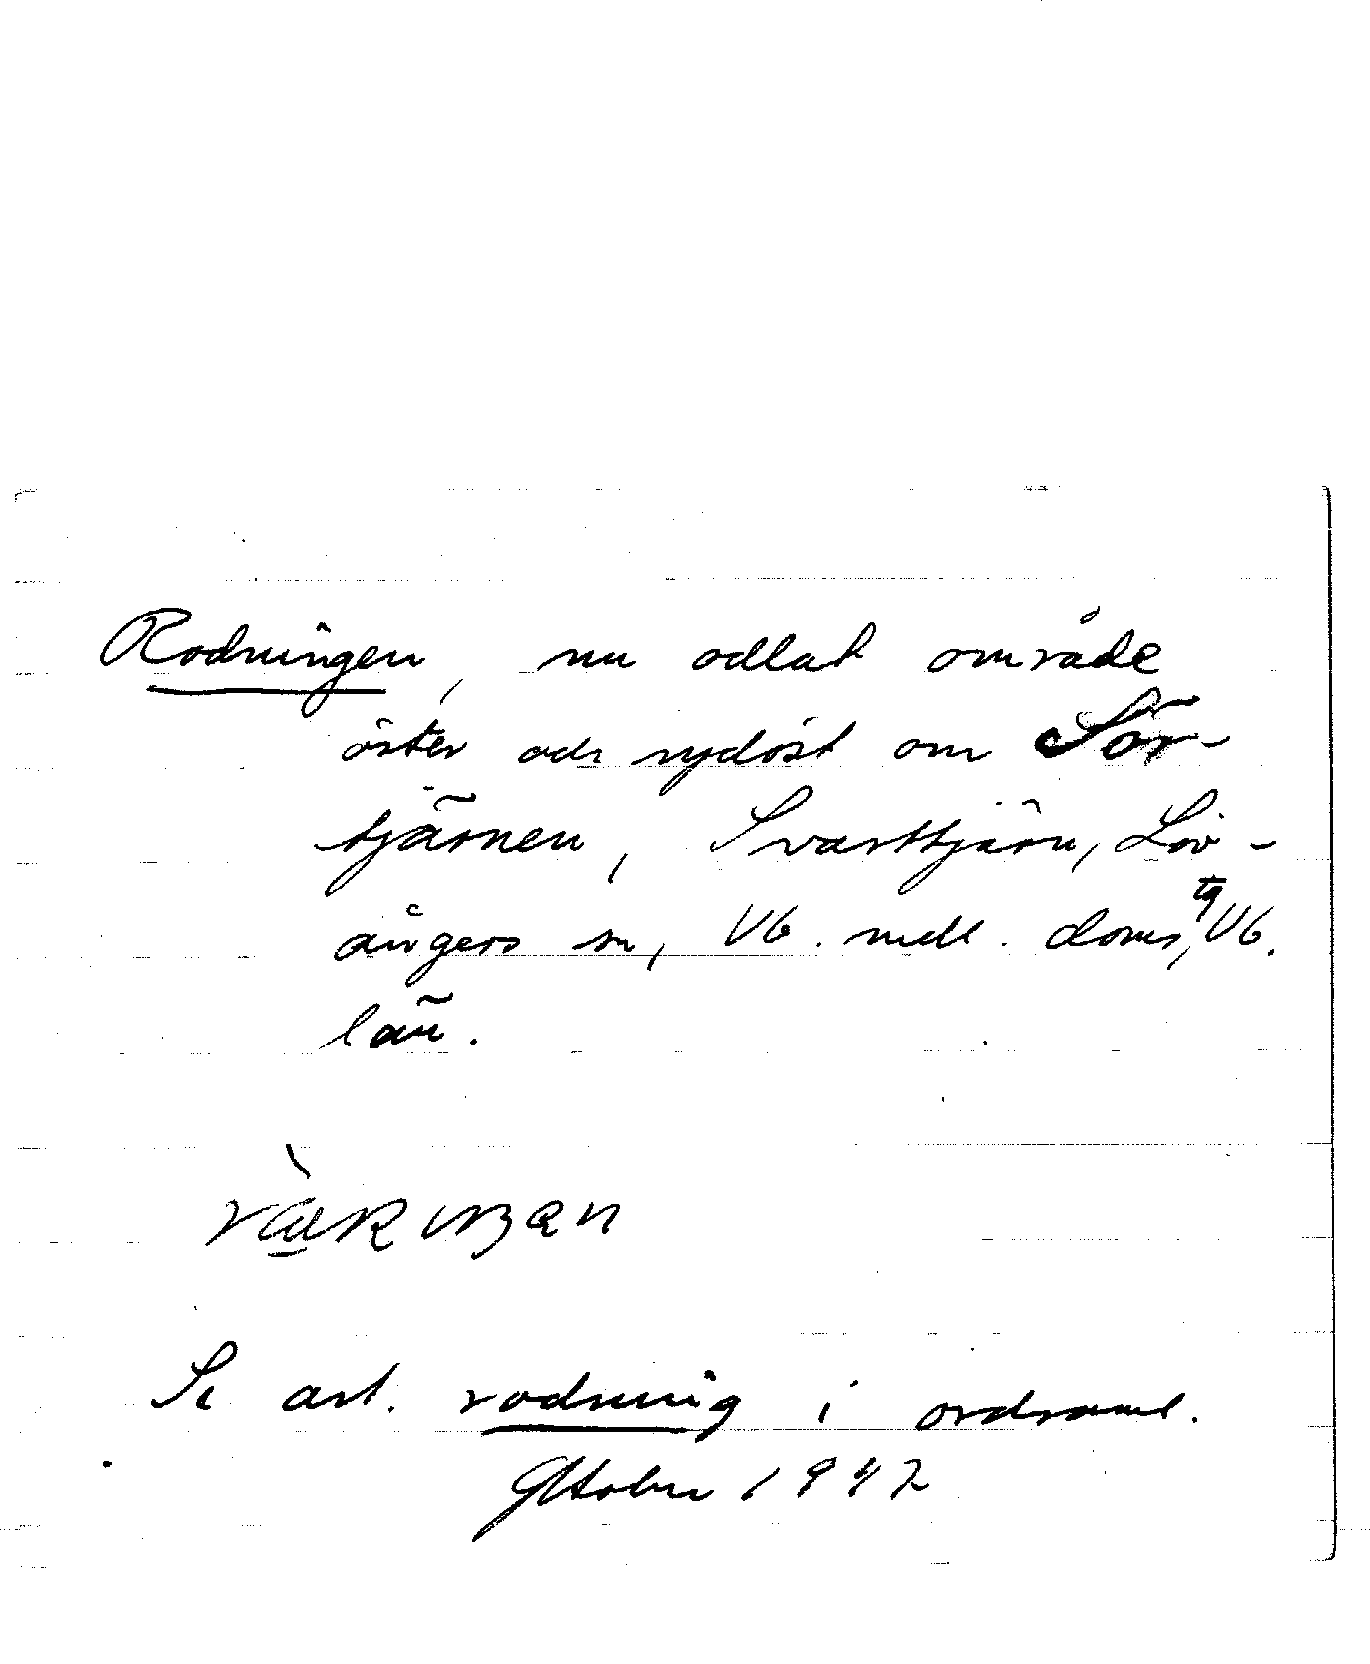 Rodningen, nu odlat område
öster och sydöst om Sör-
tjärnen, Svarttjärn, Löv-
ångers sn, Vb. mell. doms tg, Vb.
län.
Se art. rodning i ordsaml.
Oktober 1942